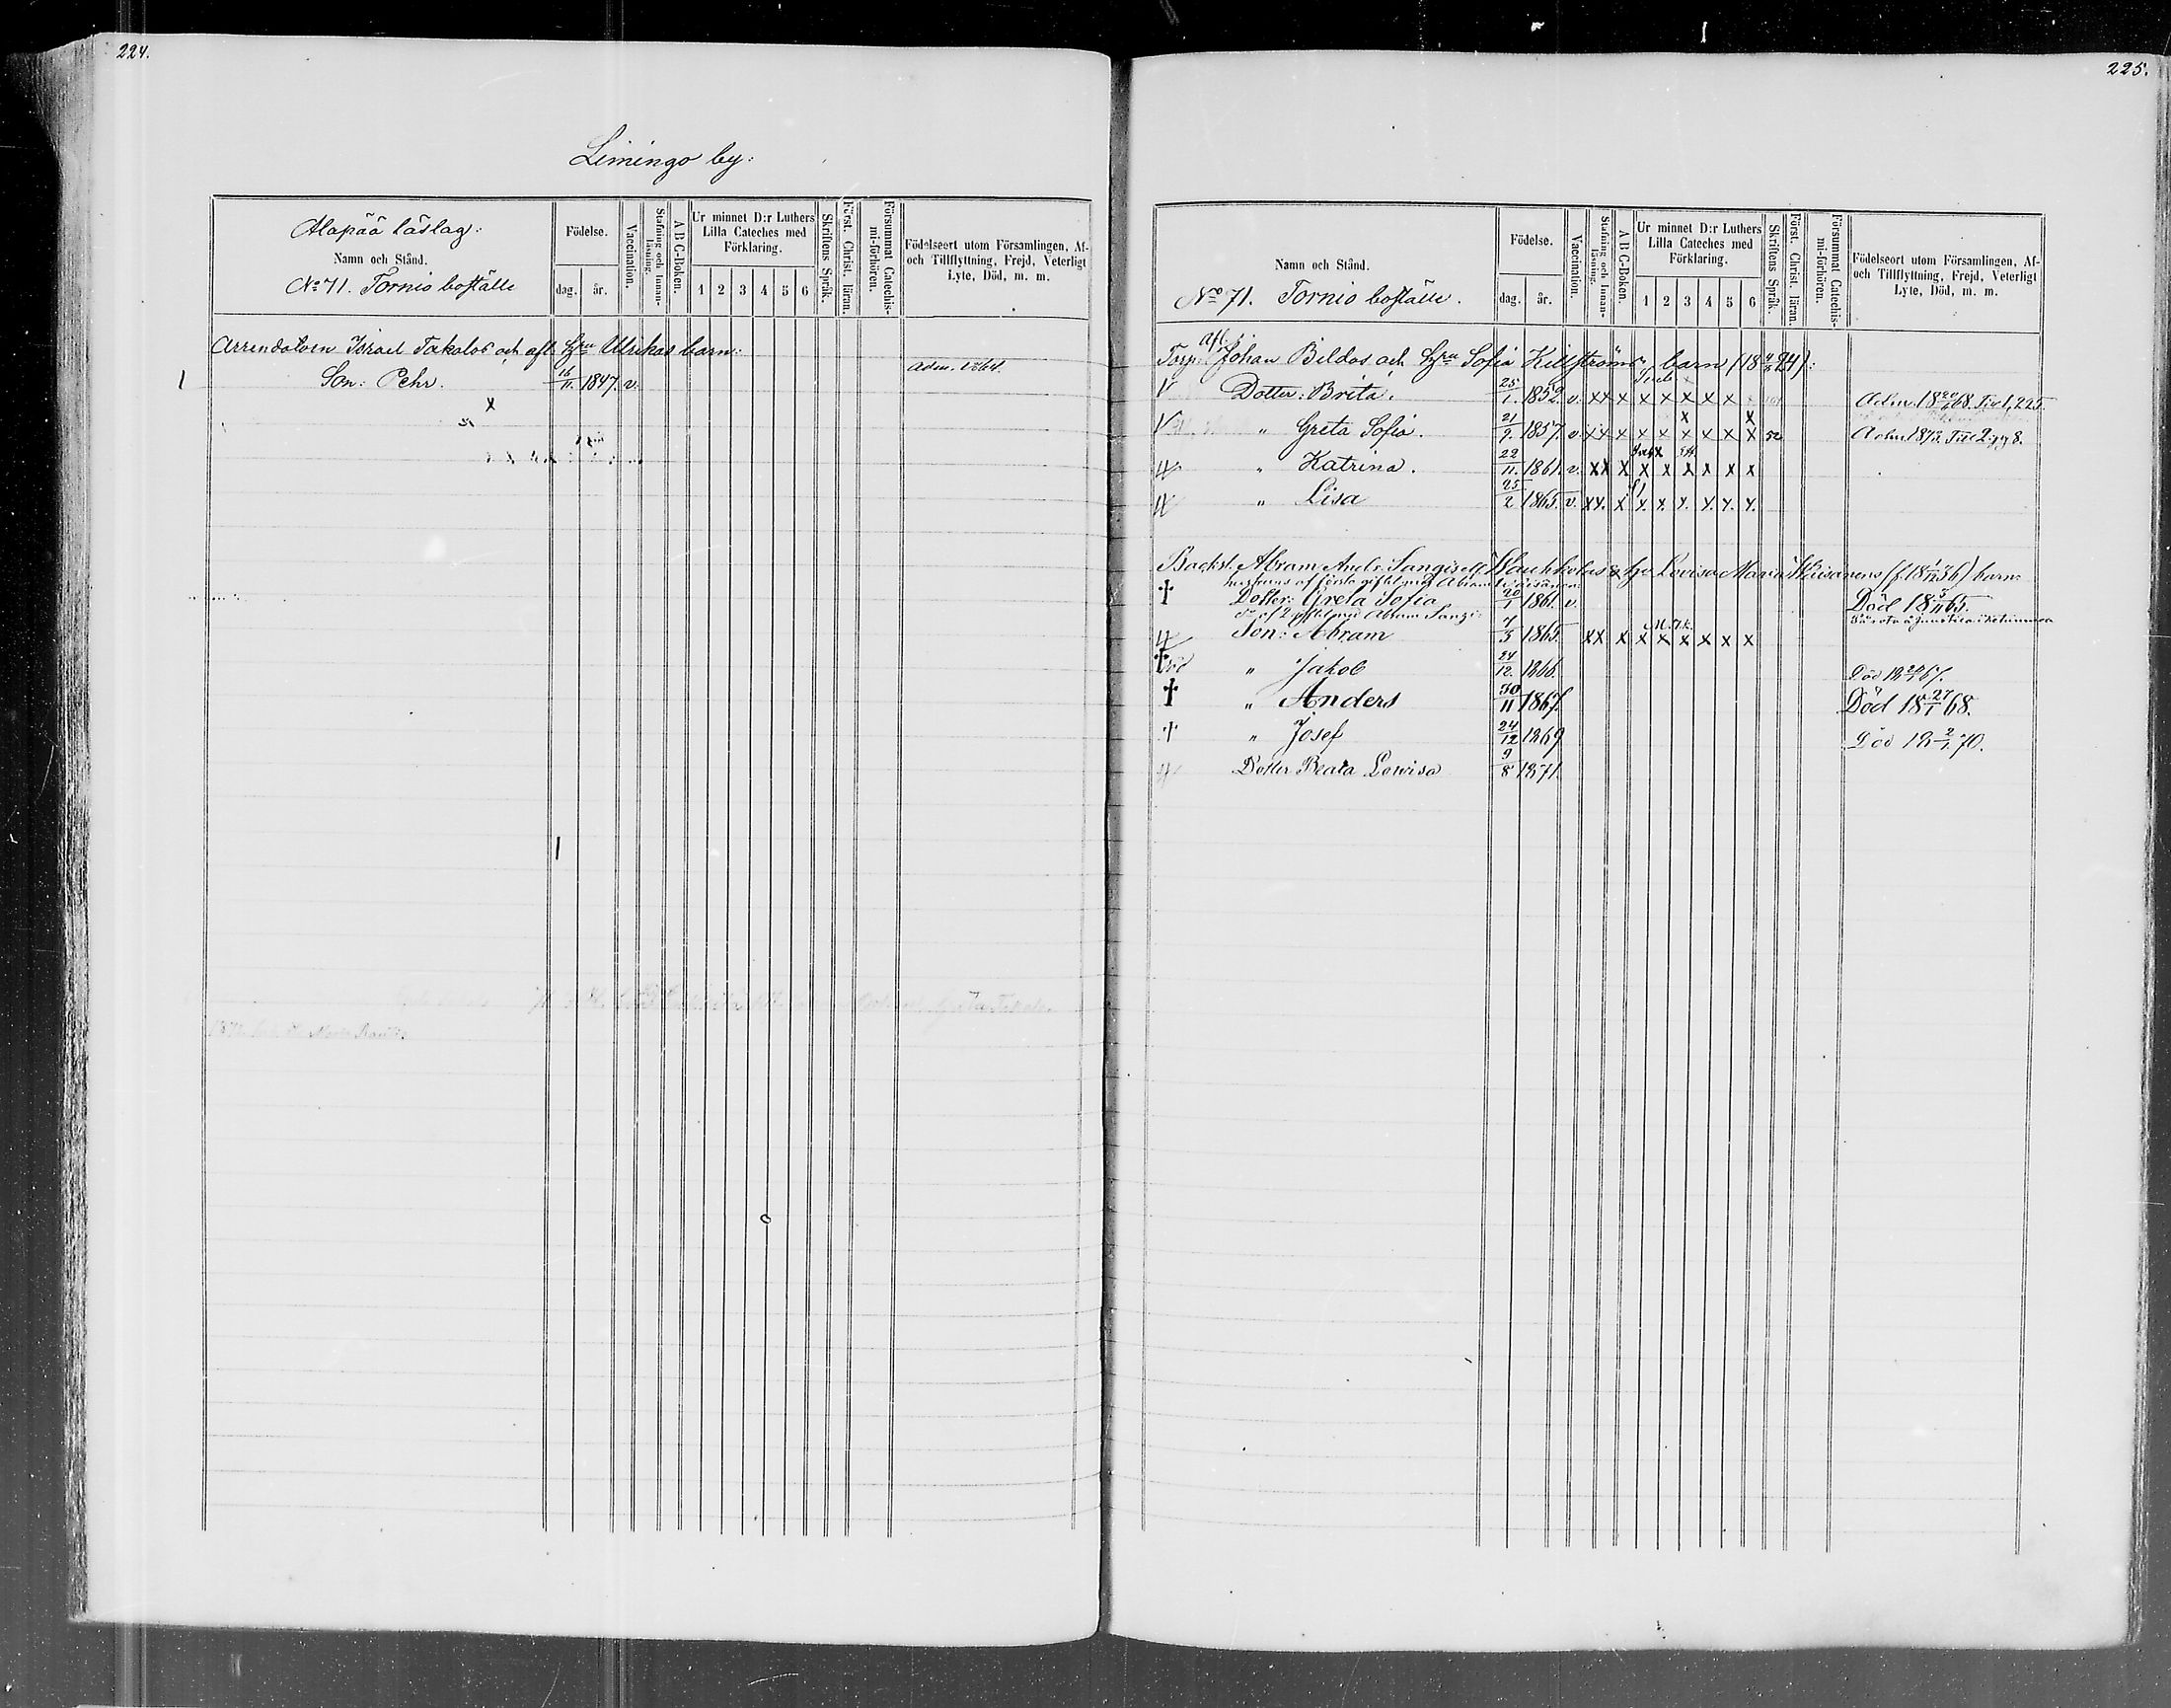 224.
Limingo by:
Alapää läslag:
Namn och Stånd.
No 71. Tornio boställe
Födelse.
dag. år.
Vaccination.
Stafning och Innan-läsning.
A B C-Boken.
Ur minnet D:r Luthers Lilla Cateches med Förklaring.
1 2 3 4 5 6
Skriftens Språk.
Först. Christ. läran.
Försummat Catechis-mi-förhören.
Födelseort utom Församlingen, Af- och Tillflyttning, Frejd, Veterligt Lyte, Död, m. m.
Arrendatorn Israel Takalos och afl. hru Ulrikas barn:
Son: Pehr. 16/11. 1847. v. Adm. 1864.
225.
Namn och Stånd.
No 71. Tornio boställe.
Födelse.
dag. år.
Vaccination.
Stafning och Innan-läsning.
A B C-Boken.
Ur minnet D:r Luthers Lilla Cateches med Förklaring.
1 2 3 4 5 6
Skriftens Språk.
Först. Christ. läran.
Försummat Catechis-mi-förhören.
Födelseort utom Församlingen, Af- och Tillflyttning, Frejd, Veterligt Lyte, Död, m. m.
Afl.
Torp. Johan Bildos och hru Sofia Killströms barn
V Dotter: Brita. 25/1. 1852. v. x x x x x x x x Adm. 18 68. 225.
V " Greta Sofia. 21/9. 1857. v. x x x x x x x x x 52 Adm 1873.
" Katrina. 22/11. 1861. v. x x x x x x x x x
" Lisa 25/2 1865. v. x x. x x. x. x. x. x. x.
Backst. Abram Andr. Sangis & hu Lovisa Maria Wäisänens (f. 18 1/12 36) barn:
hustruns af första giftet med Abram Wäisänen
† Dotter: Greta Sofia 20/1 1861. v. Död 18 5/11 65.
af 2 giftet med Abram Sangi
Son: Abram 7/3 1865. x x x x x x x x x
† " Jakob 24/12. 1866. Död 67.
† " Anders 30/11 1867. Död 18 27/1 68.
† " Josef 24/12 1869 Död 18 2/1 70.
Dotter Beata Lowisa 9/8 1871.